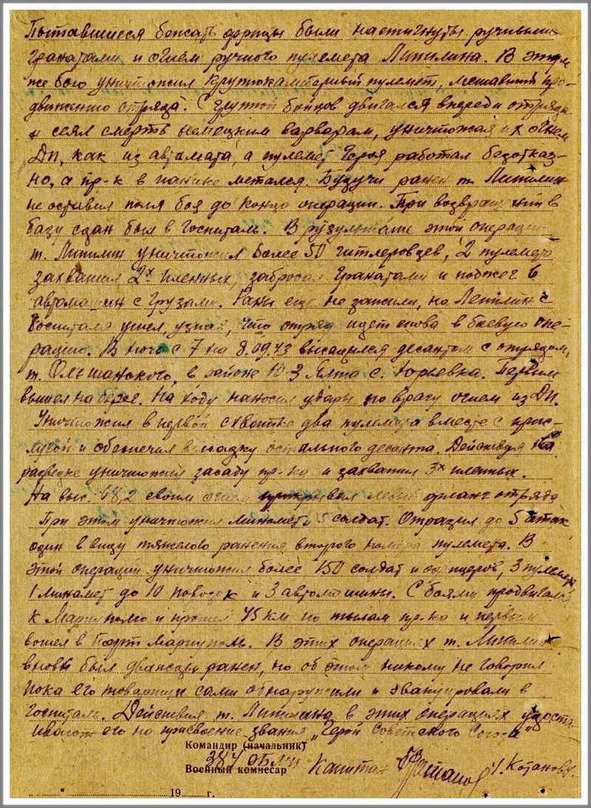 Пытавшиеся бежать фрицы были настигнуты ручными
гранатами и огнем ручного пулемета Липилина. В этом
же бою уничтожил крупнокалиберный пулемет, мешавший про-
движению отряда. С группой бойцов двигался впереди отряда
и сеял смерть немецким варварам, уничтожая их огнем
ДП, как из автомата, а пулемет Героя работал безотказ-
но, а пр-к в панике метался. Будучи ранен т. Липилин
не оставил поля боя до конца операции. При возвращении в
базу сдан был в госпиталь. В рузультате этой операции
т. Липилин уничтожил более 50 гитлеровцев, 2 пулемета
захватил 2х пленных, забросал гранатами и поджег 6
автомашин с грузами. Раны еще не зажили, но Липилин с
госпиталя ушел, узнав, что отряд идет снова в боевую опе-
рацию. В ночь с 7 на 8.09.43 высадился десантом с отрядом
т. Ольшанского, в районе Ялта с. Юрьевка. Первым
вышел на берег. На ходу наносил удары по врагу огнем из ДП.
Уничтожил в первой схватке два пулемета вместе с прис-
лугой и обеспечил высадку остального десанта. Действуя на
разведке уничтожил засаду пр-ка и захватил 3х пленных.
На выс. 68,2 своим огнем прикрывал левый фланг отряда
При этом уничтожил миномет солдат. Отразил до 5 атак
один в виду тяжелого ранения второго номера пулемета. В
этой операции уничтожил более 150 солдат и офицеров, 3 пулемета
1 миномет до 10 повозок и 3 автомашины. С боями продвигался
к Мариуполю и прошел 45 км по тылам пр-ка и первым
вошел в Порт Мариуполь. В этих операциях т. Липилин
вновь был ранен, но об этом никому не говорил
пока его товарищи сами обнаружили и эвакуировали в
госпиталь. Действия т. Липилина в этих операциях удоста-
ивают его на присвоение звания „Герой Советского Союза"
Командир (начальник)
384 ОБМП
Военный комиссар Капитан /Котанов/.
19 г.